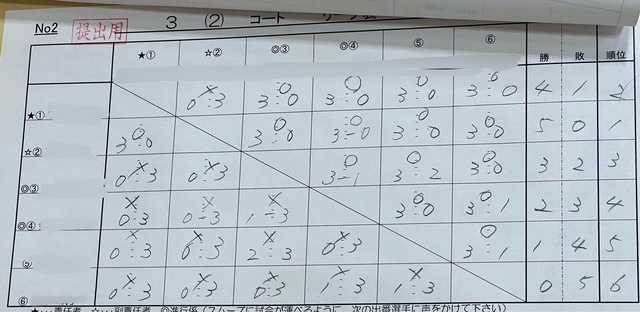 No2 提出用 3 (2) コート
★① ☆② ◎③ ◎④ ⑤ ⑥ 勝 敗 順位
★① × 0:3 ○ 3:0 ○ 3:0 ○ 3:0 ○ 3:0 4 1 2
☆② ○ 3:0 ○ 3:0 ○ 3-0 ○ 3:0 ○ 3:0 5 0 1
◎③ × 0:3 × 0:3 ○ 3-1 ○ 3:2 ○ 3:0 3 2 3
◎④ × 0:3 × 0:3 × 1:3 ○ 3:0 ○ 3:1 2 3 4
⑤ × 0:3 × 0:3 × 2:3 × 0:3 ○ 3:1 1 4 5
⑥ × 0:3 × 0:3 × 0:3 × 1:3 × 1:3 0 5 6
★・・・責任者 ☆・・・副責任者 ◎進行係(スムーズに試合が運べるように、次の出番選手に声をかけて下さい)